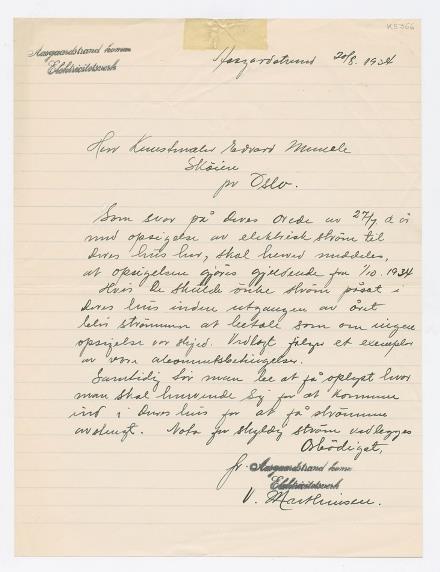 K5366
Aasgaardstrand komm
Elektricitetsverk
Aasgaardstrand 20/8. 1934
Herr Kunstmaler Edvard Munch
Skøien
pr Oslo.
Som svar på Deres ordre av 27/7 d. år
med opsigelse av elektrisk strøm til
Deres hus her, skal herved meddeles,
at opsigelsen gjöres gjeldende fra 1/10. 1934
Hvis De skulde önske ström påsat i
Deres hus inden utgangen av året
blir strömmen at betale som om ingen
opsigelse var skjed. Vedlagt følger et exemplar
av våre abonnentsbetingelser.
Samtidig bør man be at få oplyst hvor
man skal henvende sig for at komme
ind i Deres hus for at få strömmen
avstengt. Nota for skyldig ström vedlegges
Ærbödigst,
fr. Aasgaardstrand komm
Elektricitetsverk
V. Marthinsen.